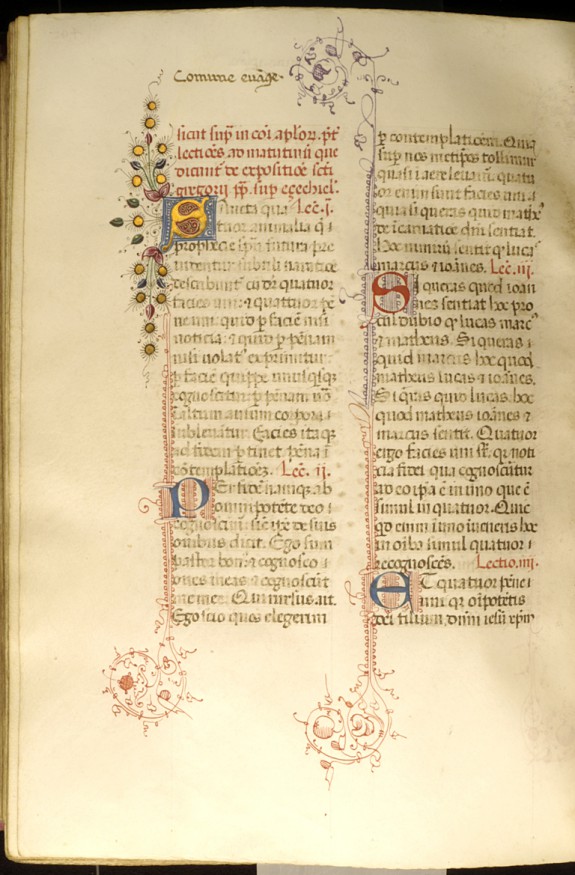 Comune evãge.
sicut sup̃ in cõi aplõr. pt̃
lectiões ad matutinũ que
dicunt de expositiõe scti
gregorij pp̃. sup ezechiel.
Sancta qua Lec̃. i.
tuor animalia q̃ i
prophecie sp̃u futura pre
uidentur subtili narratiõe
describunt
facies uni ⁊ quattuor pẽ
ne uni. quid p̱ faciẽ nisi
noticia: ⁊ quid p̱ pẽnam
nisi uolat9 exprimitur
p̱ faciẽ quippe unusq̃sq̃
cognoscitur. p̱ pẽnam uõ
ĩ altum auium corpora s
ubleuãtur. Facies itaq̃
ad fidem p̱tinet. pẽna ĩ
cõtemplatiõez. Lec̃. ii.
Per fidẽ namq̃ ab
omnipotẽte deo
cognoscimur: sic ip̃e de suis
ouibus dicit. Ego sum
pastor bonus ⁊ cognosco
oues meas ⁊ cognoscũt
me mee. Qui rursus ait.
Ego scio quos elegerim
p̱ contemplatiõem. Quia
sup̃ nos metip̃os tollimur
quasi ĩ aere leuam̃. quatu
or enim sunt facies uni
quia si queras quid mathꝰ
de icarnatiõe dñi sentiat.
Hoc nimirũ sentit qd̃ lucaˢ
marcus ⁊ ioãnes. Lec̃. iii.
Si queras quid ioan
nes sentiat hoc pro
cul dubio qd̃ lucas marcˢ
⁊ matheus. Si queras
quid marcus hoc quod
matheus lucas ⁊ ioãnes.
Si quis quid lucas. hoc
quod matheus ioãnes ⁊
marcus sentit. Quatuor
ergo facies uni sũt. qr̃ noti
cia fidei qua cognoscũtur
ad eo ip̃a ẽ in uno que ẽ
simul in quatuor. Quic
qd̃ enim ĩ uno inueneris hoc
in oĩbꝰ simul quatuor
recognosces. Lectio. iiij.
Et quatuor pẽne
uni. qr̃ oĩpotẽtis
dei filium dñm iesũ xp̃m